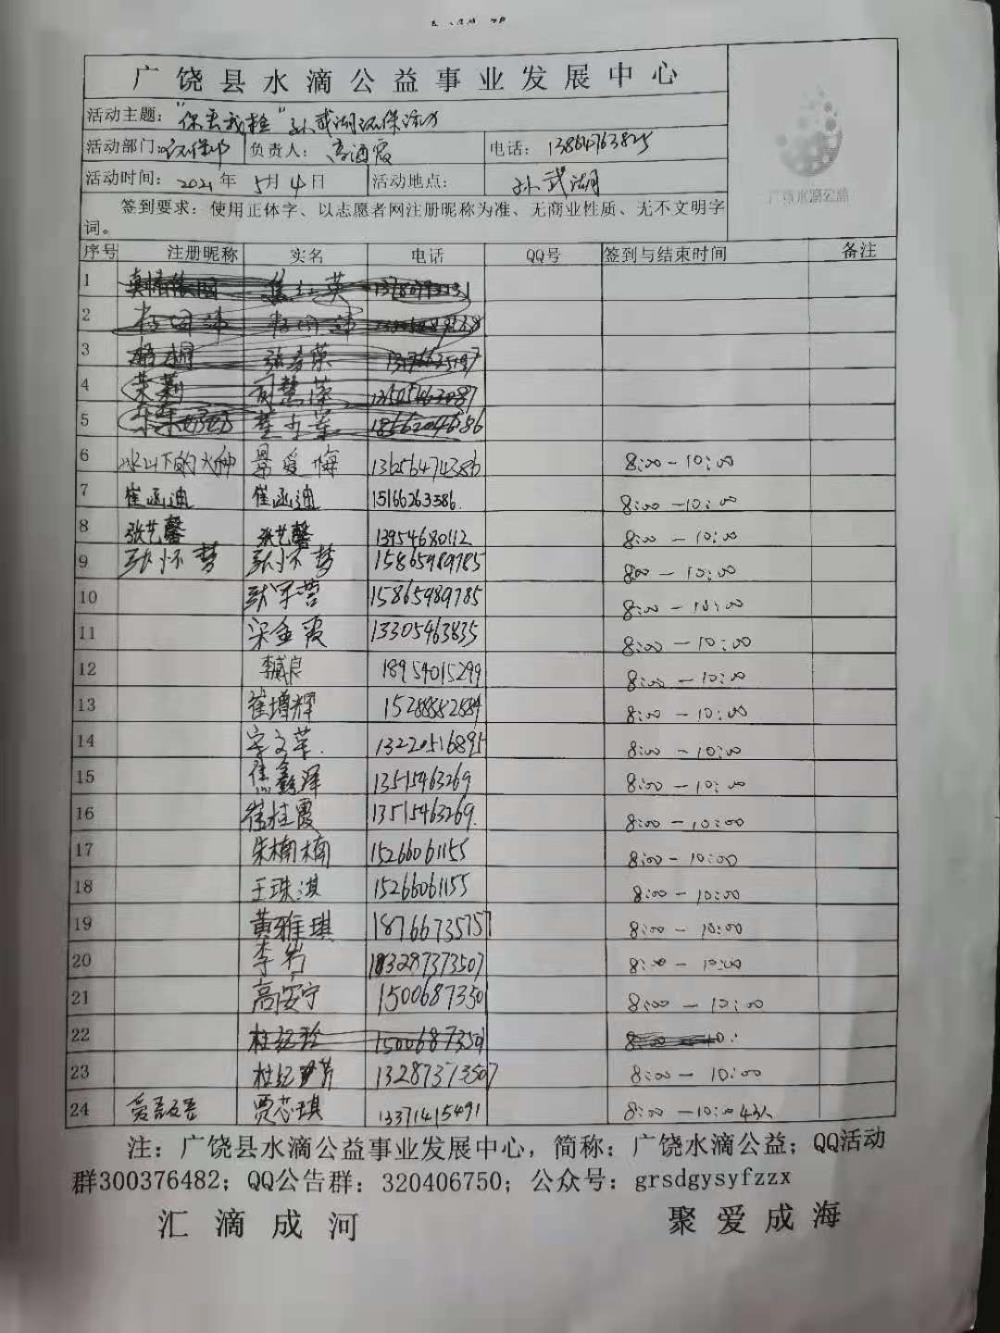 广饶县水滴公益事业发展中心
活动主题：“你丢我捡”孙武湖环保活动
活动部门：环保部 负责人：高酒霞 电话：13864763825
活动时间：2021年5月4日 活动地点：孙武湖
签到要求：使用正体字、以志愿者网注册昵称为准、无商业性质、无不文明字
词。
广饶水滴公益
序号 注册昵称 实名 电话 QQ号 签到与结束时间 备注
1
2
3
4
5
6 冰山下的火种 景爱梅 136256474386 8:00-10:00
7 崔函迪 崔函迪 15166263386. 8:00-10:00
8 张艺馨 张艺馨 13954680112 8:00-10:00
9 张怀梦 张怀梦 15865989785 800-10:00
10 15865989785 8:00-10:00
11 梁金霞 13305463835 8:00-10:00
12 李咸良 18954015299 8:00-10:00
13 崔增辉 15288882884 8:00-10:00
14 宁文苹. 13220516895 8:00-10:00
15 焦鑫泽 13515463269 8:00-10:00
16 崔桂霞 13515463269. 8:00-10:00
17 朱楠楠 15266061155 8:00-10:00
18 王珠淇 15266061155 8:00-10:00
19 黄雅琪 18766735757 8:00-10:00
20 李岩 13287373507 8:00-10:00
21 高安宁 15006873501 8:00-10:00
22 15006873501
23 13287373507 8:00-10:00
24 贾芯琪 13371415491 8:00-10:00 4人
注：广饶县水滴公益事业发展中心，简称：广饶水滴公益；QQ活动
群300376482；QQ公告群：320406750；公众号：grsdgysyfzzx
汇滴成河 聚爱成海